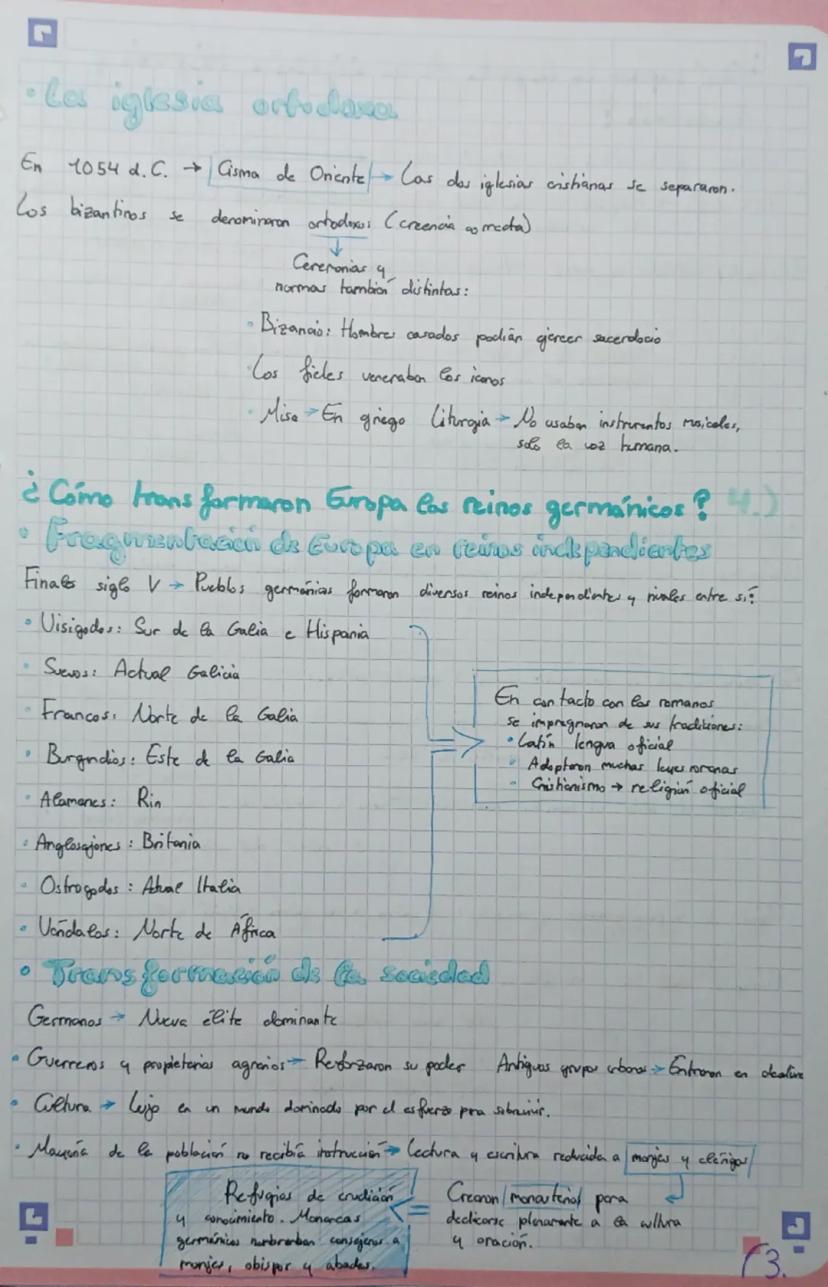 • La iglesia ortodoxa
En 1054 d.C. → Cisma de Oriente → Las dos iglesias cristianas se separaron.
Los bizantinos se denominaron ortodoxos (creencia correcta)
↓
Ceremonias y
normas también distintas:
• Bizancio: Hombres casados podían ejercer sacerdocio
• Los fieles veneraban los iconos
• Misa → En griego Liturgia → No usaban instrumentos musicales,
solo la voz humana.
¿Cómo transformaron Europa los reinos germánicos? 4.)
• Fragmentación de Europa en reinos independientes
Finales siglo V → Pueblos germánicos formaron diversos reinos independientes y rivales entre sí:
• Visigodos: Sur de la Galia e Hispania
• Suevos: Actual Galicia
• Francos: Norte de la Galia
• Burgundios: Este de la Galia
• Alamanes: Rin
• Anglosajones: Britania
• Ostrogodos: Actual Italia
• Vándalos: Norte de África
En contacto con los romanos
se impregnaron de sus tradiciones:
• Latín lengua oficial
• Adoptaron muchas leyes romanas
• Cristianismo → religión oficial
• Transformación de la sociedad
Germanos → Nueva élite dominante
• Guerreros y propietarios agrarios → Reforzaron su poder Antiguos grupos urbanos → Entraron en declive
• Cultura → Lujo en un mundo dominado por el esfuerzo para sobrevivir.
• Mayoría de la población no recibía instrucción → Lectura y escritura reducida a monjes y clérigos
Crearon monasterios para
dedicarse plenamente a la cultura
y oración.
Refugios de erudición
y conocimiento. Monarcas
germánicos nombraban consejeros a
monjes, obispos y abades.
3.